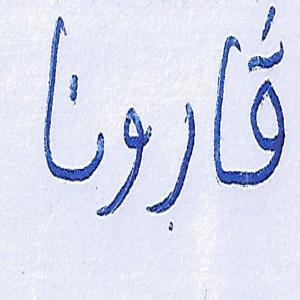 قَارِونا